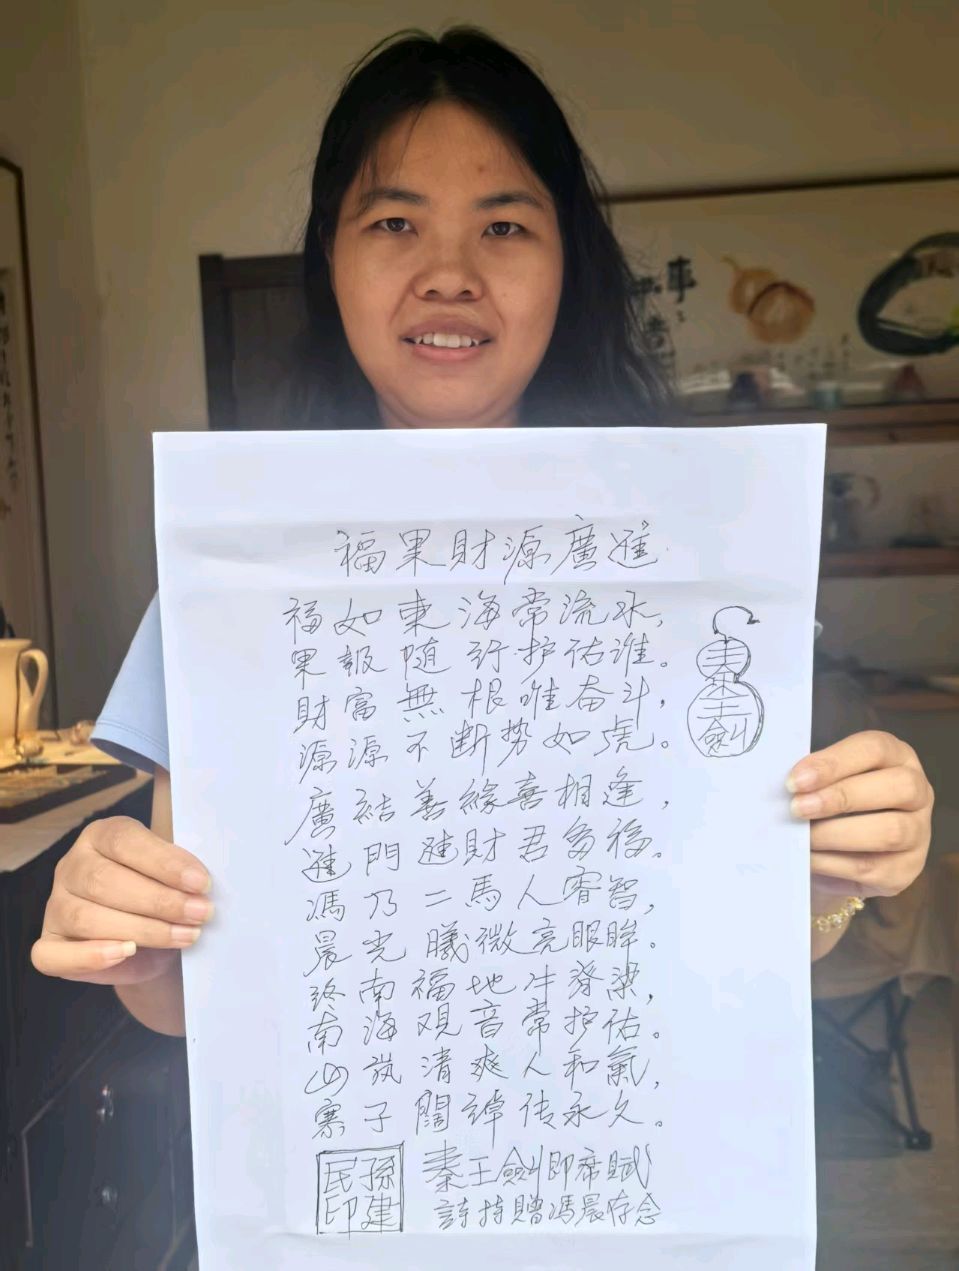 福果財源廣進
福如東海常流水，
果報随行护佑谁。
財富無根唯奋斗，
源源不断势如虎。
廣結善緣喜相逢，
進門進財君多福。
馮乃二馬人睿智，
晨光曦微亮眼眸。
终南福地牛脊梁，
南海观音常护佑。
山芄清爽人和氣，
寨子闊綽传永久。
秦王劍
孫建民印
秦王劍即席賦
詩持贈馮晨存念